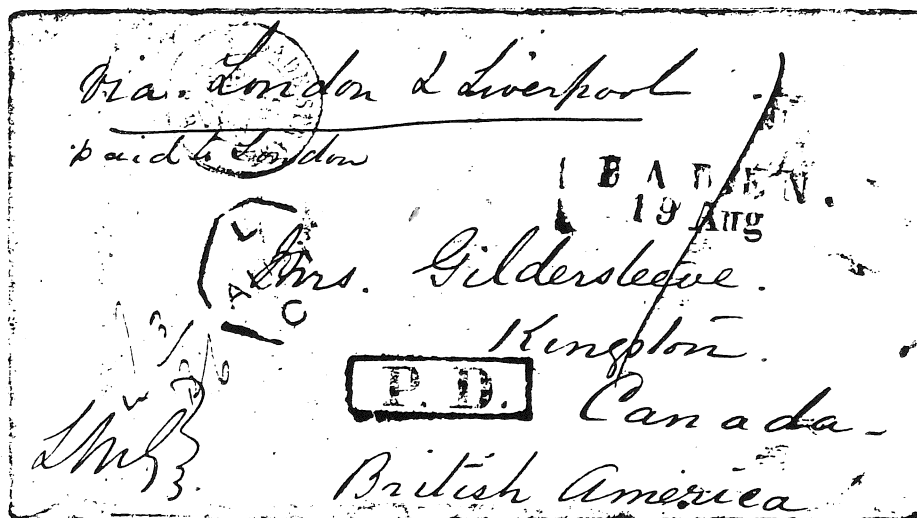 via. London & Liverpool
paid to London
BADEN.
19 Aug
Mrs. Gildersleeve.
Kingston.
P. D.
Canada -
British America